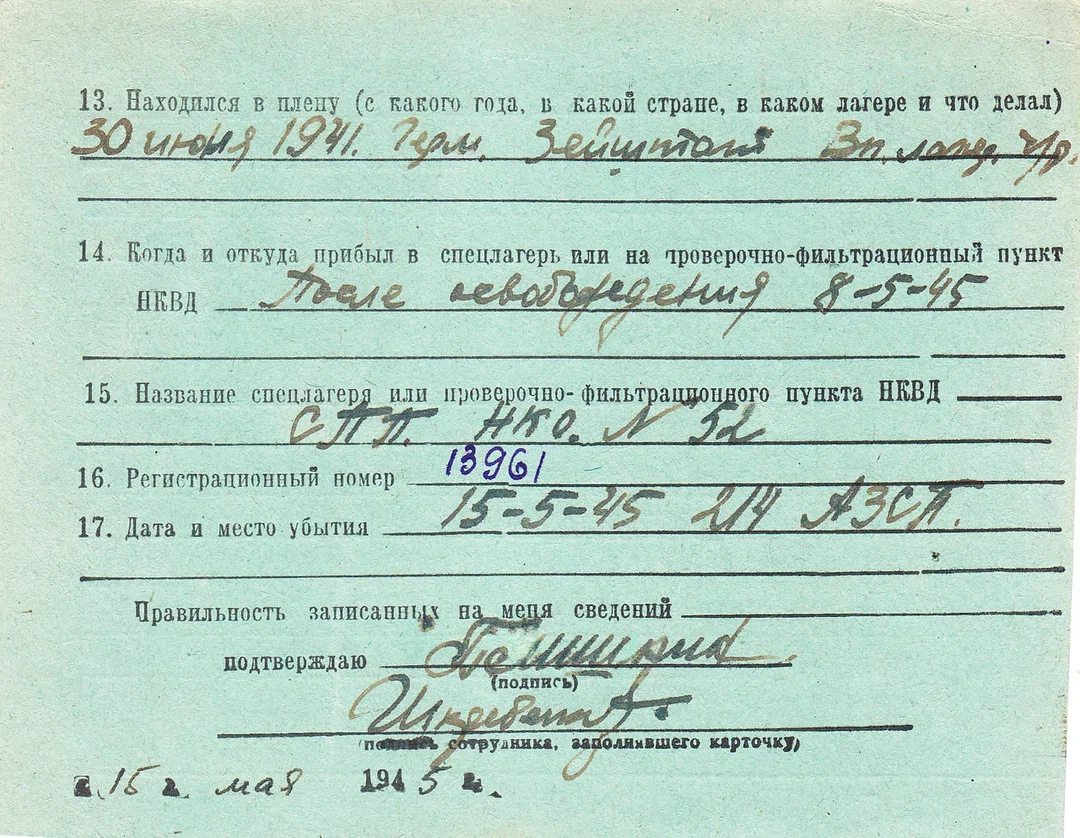 13. Находился в плену (с какого года, в какой стране, в каком лагере и что делал)
30 июня 1941. Герм. лагр. ч/р.
14. Когда и откуда прибыл в спецлагерь или на проверочно-фильтрационный пункт
НКВД После освобождения 8-5-45
15. Название спецлагеря или проверочно-фильтрационного пункта НКВД
СПП. НКО. N 52
16. Регистрационный номер 13961
17. Дата и место убытия 15-5-45 214 АЗСП.
Правильность записанных на меня сведений
подтверждаю
(подпись)
(подпись сотрудника, заполнявшего карточку)
15 мая 1945 г.